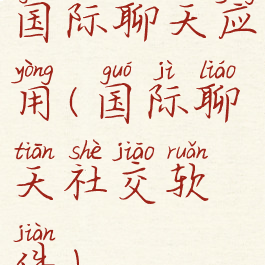 国际聊天应
yòng guó jì liáo
用(国际聊
tiān shè jiāo ruǎn
天社交软
jiàn
件)